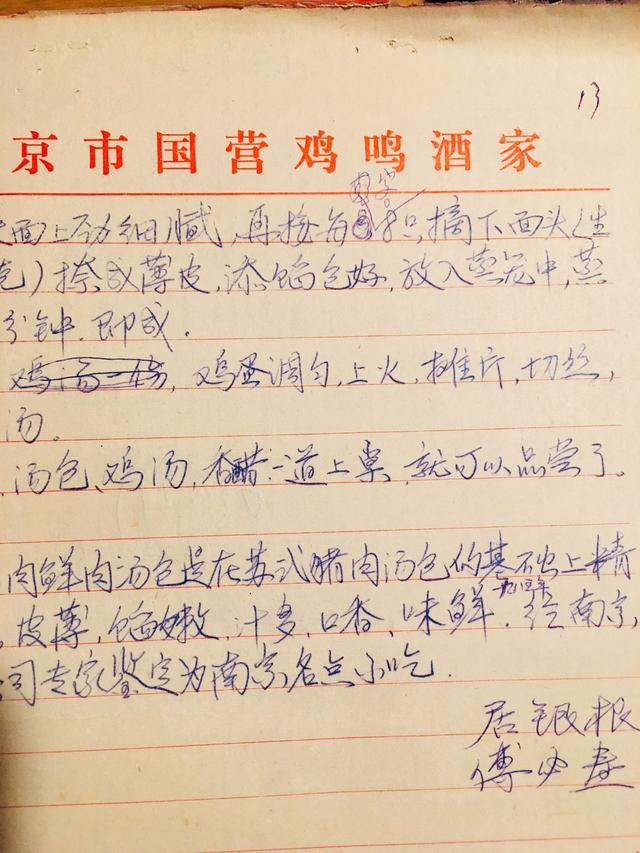 13
京市国营鸡鸣酒家
面上劲细腻,再按每只摘下面头(生
)擀成薄皮,添馅包好,放入蒸笼中,蒸
分钟,即成.
鸡汤 鸡蛋调匀,上火,摊片,切丝,
汤。
汤包、鸡汤,香醋一道上桌,就可以品尝了。
肉鲜肉汤包是在苏式猪肉汤包的基础上精
皮薄,馅嫩,汁多,口香,味鲜.经南京,
司专家鉴定为南京名点小吃.
居银根
傅